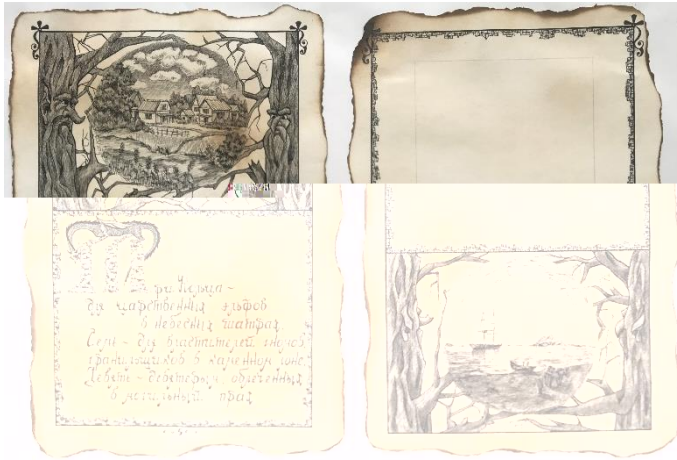 Три Кольца -
для царственных эльфов
в небесных шатрах.
Семь - для властителей гномов,
гранильщиков в каменном лоне.
Девять - девятерым, облеченным
в могильный прах